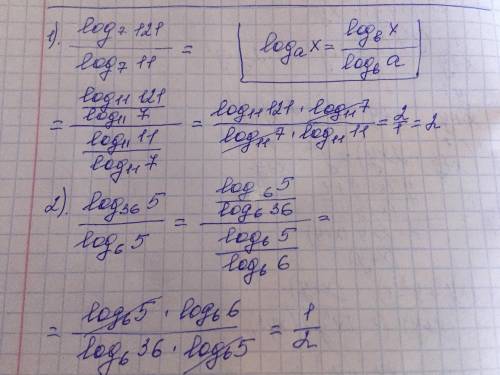 1). log₇ 121 / log₇ 11 = | logₐ x = log_b x / log_b a
= (log₁₁ 121 / log₁₁ 7) / (log₁₁ 11 / log₁₁ 7) = (log₁₁ 121 · log₁₁ 7) / (log₁₁ 7 · log₁₁ 11) = 2/1 = 2
2). log₃₆ 5 / log₆ 5 = (log₆ 5 / log₆ 36) / (log₆ 5 / log₆ 6) =
= (log₆ 5 · log₆ 6) / (log₆ 36 · log₆ 5) = 1/2